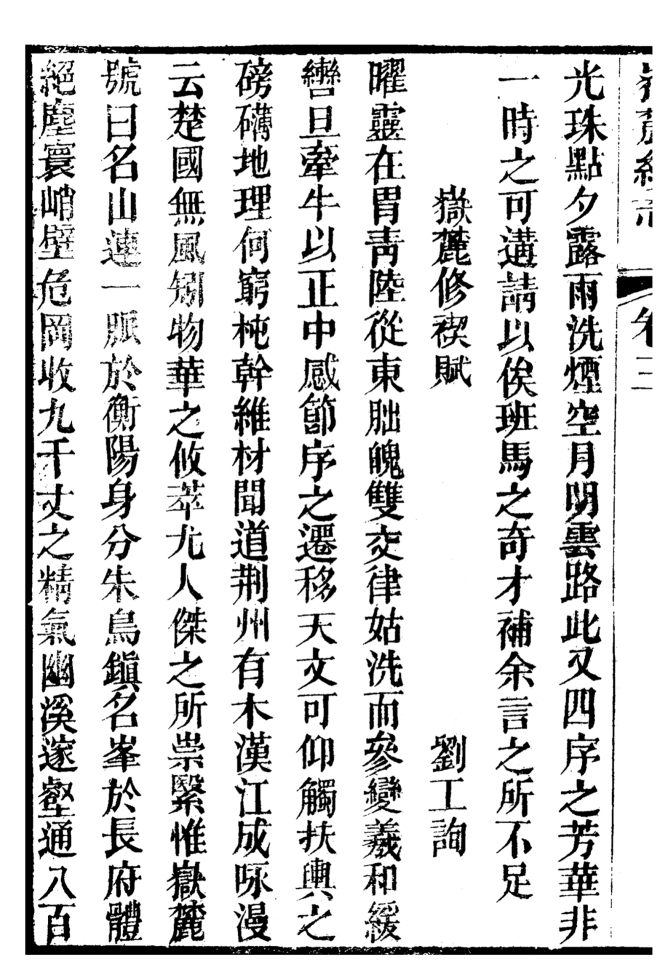 嶽麓續志 卷三
光珠點夕露雨洗煙空月明雲路此又四序之芳華非
一時之可遘請以俟班馬之奇才補余言之所不足
嶽麓修禊賦 劉工詢
曜靈在胃靑陸從東朏魄雙交律姑洗而參變羲和緩
轡旦牽牛以正中感節序之遷移天文可仰觸扶輿之
磅礡地理何窮杶幹維材聞道荆州有木漢江成咏漫
云楚國無風矧物華之攸萃尤人傑之所崇繄惟嶽麓
號曰名山連一脈於衡陽身分朱鳥鎭名峯於長府體
絕塵寰峭壁危岡收九千丈之精氣幽溪邃壑通八百